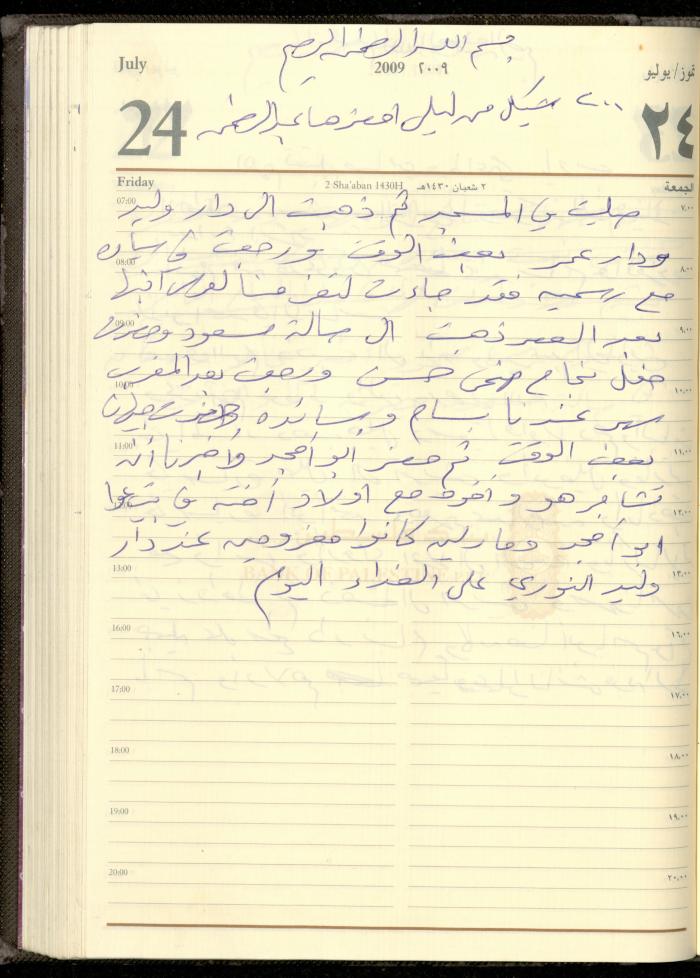 بسم الله الرحمن الرحيم
July 2009 ٢٠٠٩ تموز/يوليو
24 ٢٤
٢٠٠ شيكل من ليلى احضرها عبد الرحمن
Friday 2 Sha'aban 1430H ٢ شعبان ١٤٣٠هـ الجمعة
07:00 ٧,٠٠
صليت في المسجد ثم ذهبت الى دار وليد
ودار عمر بعض الوقت ورجعت في سيارة
08:00 ٨,٠٠
مع رسميه فقد جاءت
09:00 ٩,٠٠
بعد العصر ذهبت الى صالة مسعود
حفل نجاح ضحى حسن ورجعت بعد المغرب
10:00 ١٠,٠٠
سهر عندنا بسام وسائده
11:00 ١١,٠٠
بعض الوقت ثم حضر ابو امجد واخبرنا انه
تشاجر هو واخوه مع اولاد اخته
١٢,٠٠
ابو امجد ومارلين كانوا معزومين عند دار
13:00 ١٣,٠٠
وليد النوري على الغداء اليوم
BANK OF PALESTINE
16:00 ١٦,٠٠
17:00 ١٧,٠٠
18:00 ١٨,٠٠
19:00 ١٩,٠٠
20:00 ٢٠,٠٠